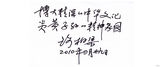 博大精深的中华文化
炎黄子孙的精神家园
2010年10月16日